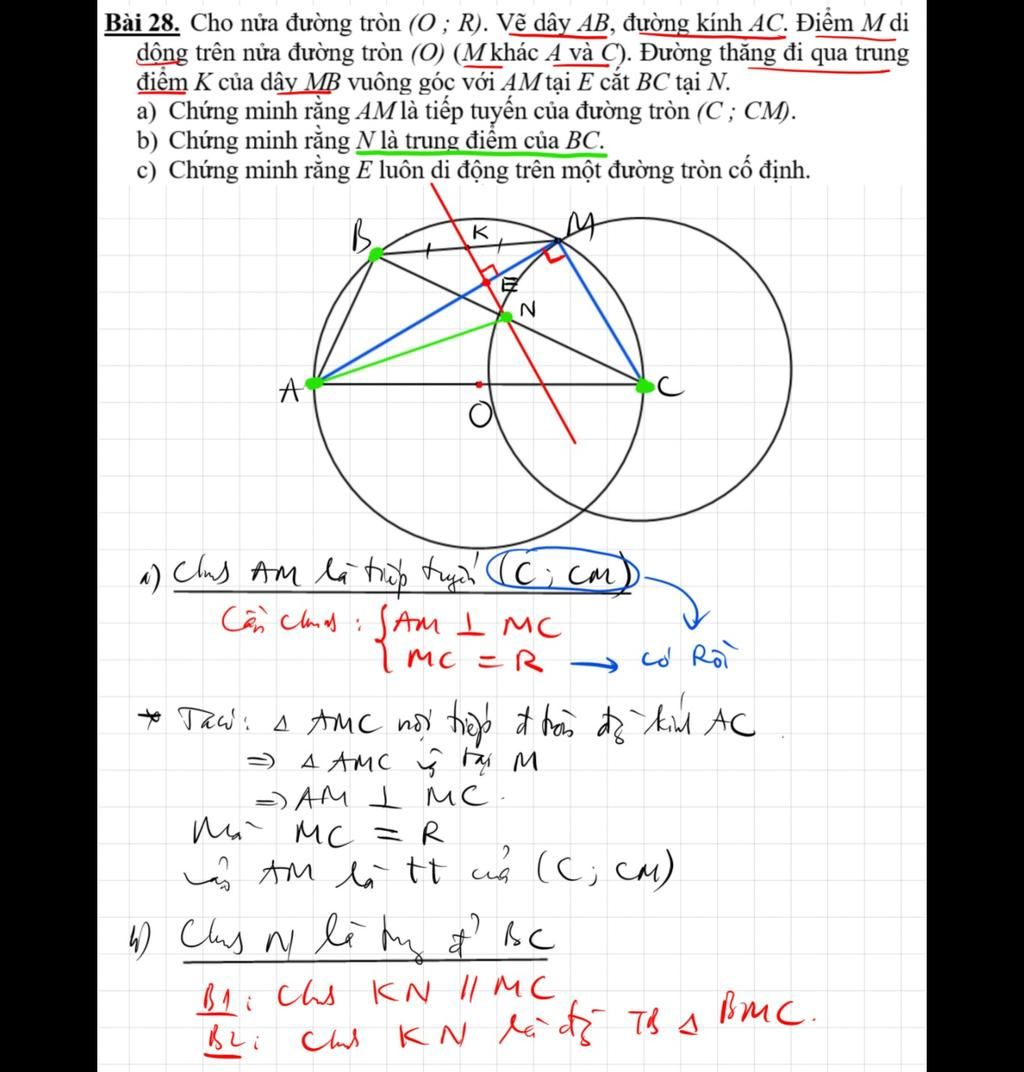 Bài 28. Cho nửa đường tròn (O ; R). Vẽ dây AB, đường kính AC. Điểm M di
động trên nửa đường tròn (O) (M khác A và C). Đường thẳng đi qua trung
điểm K của dây MB vuông góc với AM tại E cắt BC tại N.
a) Chứng minh rằng AM là tiếp tuyến của đường tròn (C ; CM).
b) Chứng minh rằng N là trung điểm của BC.
c) Chứng minh rằng E luôn di động trên một đường tròn cố định.
B K M
E
N
A O C
a) AM là tiếp tuyến (C; CM)
Cần : { AM ⊥ MC
MC = R → có Rồi
* Ta có: Δ AMC nội tiếp đ tròn kính AC
⇒ Δ AMC tại M
⇒ AM ⊥ MC.
Mà MC = R
AM là tt của (C; CM)
b) N là BC
B1: KN // MC
B2: KN là TB Δ BMC.